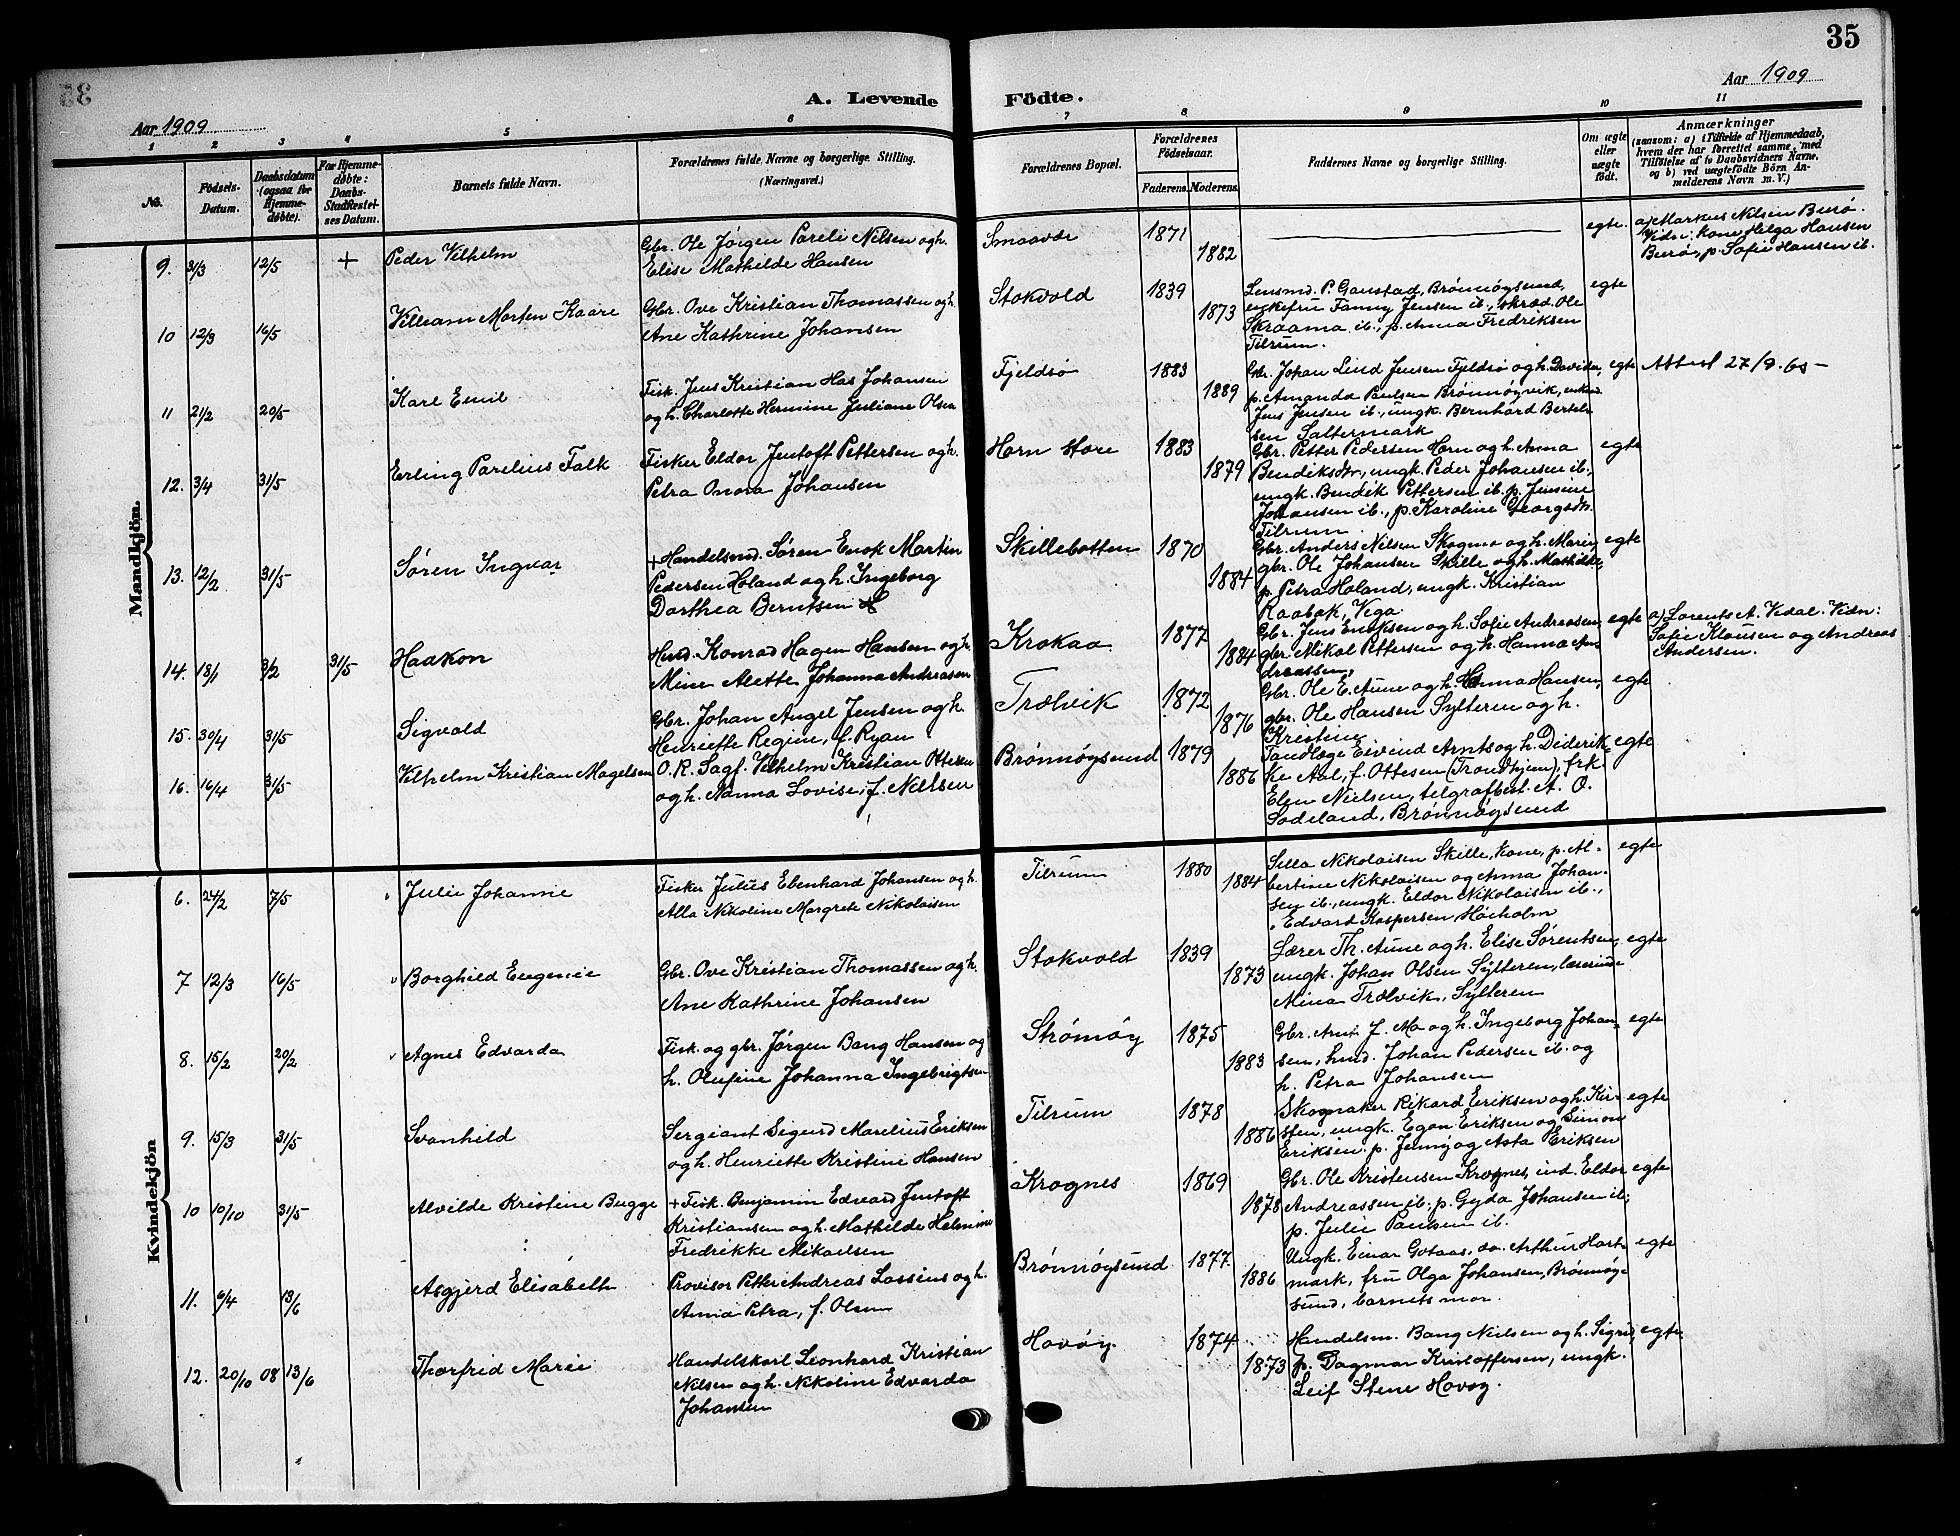 35
Aar 1909
A. Levende Fødte.
Aar 1909
1 2 3 4 5 6 7 8 9 10 11
No.
Fødsels-Datum.
Daabsdatum (ogsaa for Hjemmedøbte).
For Hjemmedøbte: Daabs-Stadfæstelses Datum.
Barnets fulde Navn.
Forældrenes fulde Navne og borgerlige Stilling. (Næringsvei.)
Forældrenes Bopæl.
Forældrenes Fødselsaar.
Faderens. Moderens.
Faddernes Navne og borgerlige Stilling.
Om ægte eller uægte født.
Anmærkninger
(saasom: a) i Tilfælde af Hjemmedaab, hvem der har forrettet samme, med Tilføielse af to Daabsvidners Navne, og b) ved uægtefødte Børn Anmelderens Navn m. V.)
Mandkjön.
9. 31/3 12/5 + Peder Vilhelm
Gbr. Ole Jörgen Pareli Nilsen og h.
Elise Mathilde Hansen
Smaavær 1871 1882 egte.
a) Markus Nilsen Burö.
Vidn: kone Helga Hansen
Burö, p. Sofie Hansen ib.
10 12/3 16/5 William Morten Kaare
Gbr. Ove Kristian Thomassen og h.
Ane Kathrine Johansen
Stokvold 1839 1873
Lensmd. P. Gaustad, Brønnøysund,
enkefru Fanny Jensen ib., skræd. Ole
Skraama ib., p. Anna Fredriksen
Tilrum.
egte
11 21/2 20/5 Karl Emil
Fisk. Jens Kristian Has Johansen
og h. Charlotte Hermine Juliane Olsen
Fjeldsø 1883 1889
Gbr. Johan Lind Jensen Fjeldsø og h. Davida,
p. Amanda Paulsen Brønnøyvik, enkem.
Jens Jensen ib., ungk. Bernhard Bertel-
sen Saltermark
egte Attest 27/9.65 –
12. 3/4 31/5 Erling Parelius Falk
Fisker Eldor Jentoft Pettersen og h.
Petra Onora Johansen
Horn store 1883 1879
Gbr. Petter Pedersen Horn og h. Anna
Bendiksdtr., ungk. Peder Johansen ib.
ungk. Bendik Pettersen ib. p. Jensine
Johansen ib., p. Karoline Georgsdtr.
Tilrum.
egte
13. 12/2 31/5 Søren Ingvar
+ Handelsmd. Søren Enok Martin
Pedersen Holand og h. Ingeborg
Dorthea Berntsen
Skillebotten 1870 1884
Gbr. Anders Nilsen Skogmo og h. Marie,
gbr. Ole Johansen Skille og h. Mathilde,
p. Petra Holand, ungk. Kristian
Raabak, Vega.
egte
14. 18/1 3/2 31/5 Haakon
Hmd. Konrad Hagen Hansen og h.
Mine Alette Johanna Andreassen
Krokaa 1877 1884
Gbr. Jens Enoksen og h. Sofie Andreassen,
gbr. Mikal Pettersen og h. Hanna An-
dreassen,
egte
a) Lorents A. Vedal. Vidn:
Sofie Klausen og Andreas
Andersen.
15. 30/4 31/5 Sigvald
Gbr. Johan Angel Jensen og h.
Henriette Regine, f. Ryan
Trælvik 1872 1876
Gbr. Ole E. Aune og h. Anna Hansen,
gbr. Ole Hansen Sylteren og h.
Kristine
egte
16. 16/4 31/5 Vilhelm Kristian Magelsen
O. R. Sagf. Vilhelm Kristian Ottesen
og h. Nanna Lovise, f. Nielsen
Brønnøysund 1879 1886
Tandlæge Eivind Arnts og h. Diderik-
ke Aal, f. Ottesen (Trondhjem), frk.
Elen Nielsen, telgrafbest. A. O.
Sødeland, Brønnøysund
egte
Kvindekjön
6. 24/2 7/5 Julie Johanne
Fisker Julius Ebenhard Johansen og h.
Alla Nikoline Margrete Nikolaisen
Tilrum 1880 1884
Silla Nikolaisen Skille, kone, p. Al-
bertine Nikolaisen og Anna Johan-
sen ib., ungk. Eldor Nikolaisen ib.,
Edvard Kaspersen, Høiholm
egte
7 12/3 16/5 Borghild Eugenie
Gbr. Ove Kristian Thomassen og h.
Ane Kathrine Johansen
Stokvold 1839 1873
Lærer Th. Aune og h. Elise Sørentsen,
ungk. Johan Olsen Sylteren, lærerinde
Mina Trælvik, Sylteren
egte
8. 15/2 20/2 Agnes Edvarda
Fisk. og gbr. Jörgen Bang Hansen og
h. Olufine Johanna Ingebrigtsen
Strömöy 1875 1883
Gbr. Arnt J. Mo og h. Ingeborg Johan-
sen, hmd. Johan Pedersen ib. og
h. Petra Johansen
egte
9. 15/3 31/5 Svanhild
Sergiant Sigurd Marelius Eriksen
og h. Henriette Kristine Hansen
Tilrum 1878 1886
Skogmaker Rikard Eriksen og h. Kir-
sten, ungk. Egon Eriksen og Simon
Eriksen. p. Jenny og Asta Eriksen
egte
10 10/10 31/5 Alvilde Kristine Bugge
+ Fisk. Benjamin Edvard Jentoft
Kristiansen og h. Mathilde Helmine
Fredrikke Mikaelsen
Krognes 1869 1878
Gbr. Ole Kristensen Krognes, ind. Eldor
Andreassen ib., p. Gyda Johansen ib.,
p. Julie Paulsen ib.
egte
11. 6/4 13/6 Asgjerd Elisabeth
Provisor Petter Andreas Lassius og h.
Anna Petra, f. Olsen
Brønnøysund 1877 1886
Ungk. Einar Gotaas, do. Arthur Hart-
mark, fru Olga Johansen, Brønnøy-
sund, barnets mor.
egte
12. 20/10 08 13/6 Thorfrid Marie
Handelskarl Leonhard Kristian
Nilsen og h. Nikoline Edvarda
Johansen
Havöy 1874 1873
Handelsm. Bang Nielsen og h. Sigrid,
p. Dagmar Kristoffersen, ungk.
Leif Stene Havøy.
egte